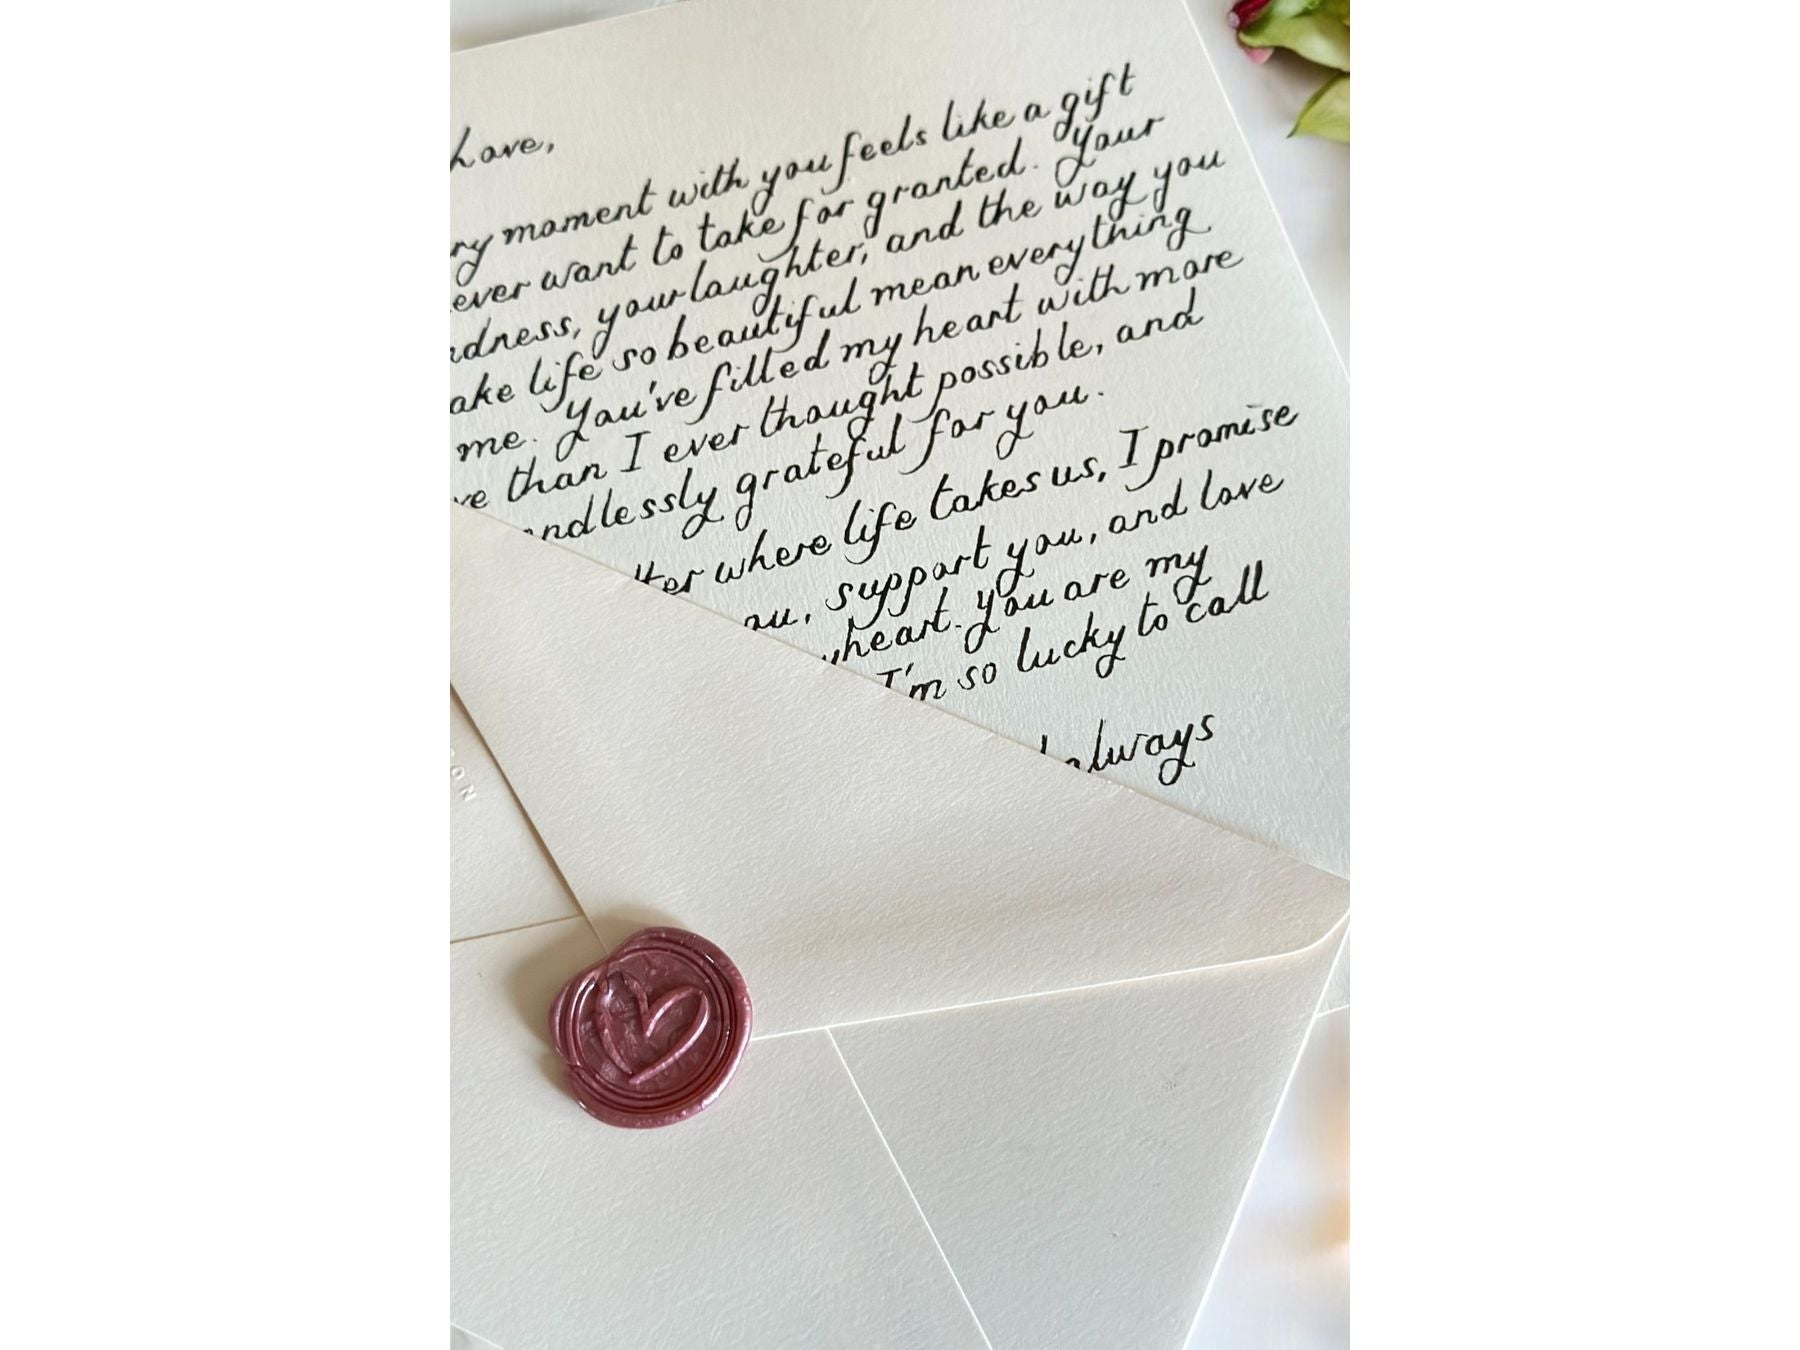 Love,
moment with you feels like a gift
ever want to take for granted. Your
your laughter, and the way you
life so beautiful mean everything
me. You've filled my heart with more
than I ever thought possible, and
grateful for you.
where life takes us, I promise
support you, and love
heart. You are my
I'm so lucky to call
always